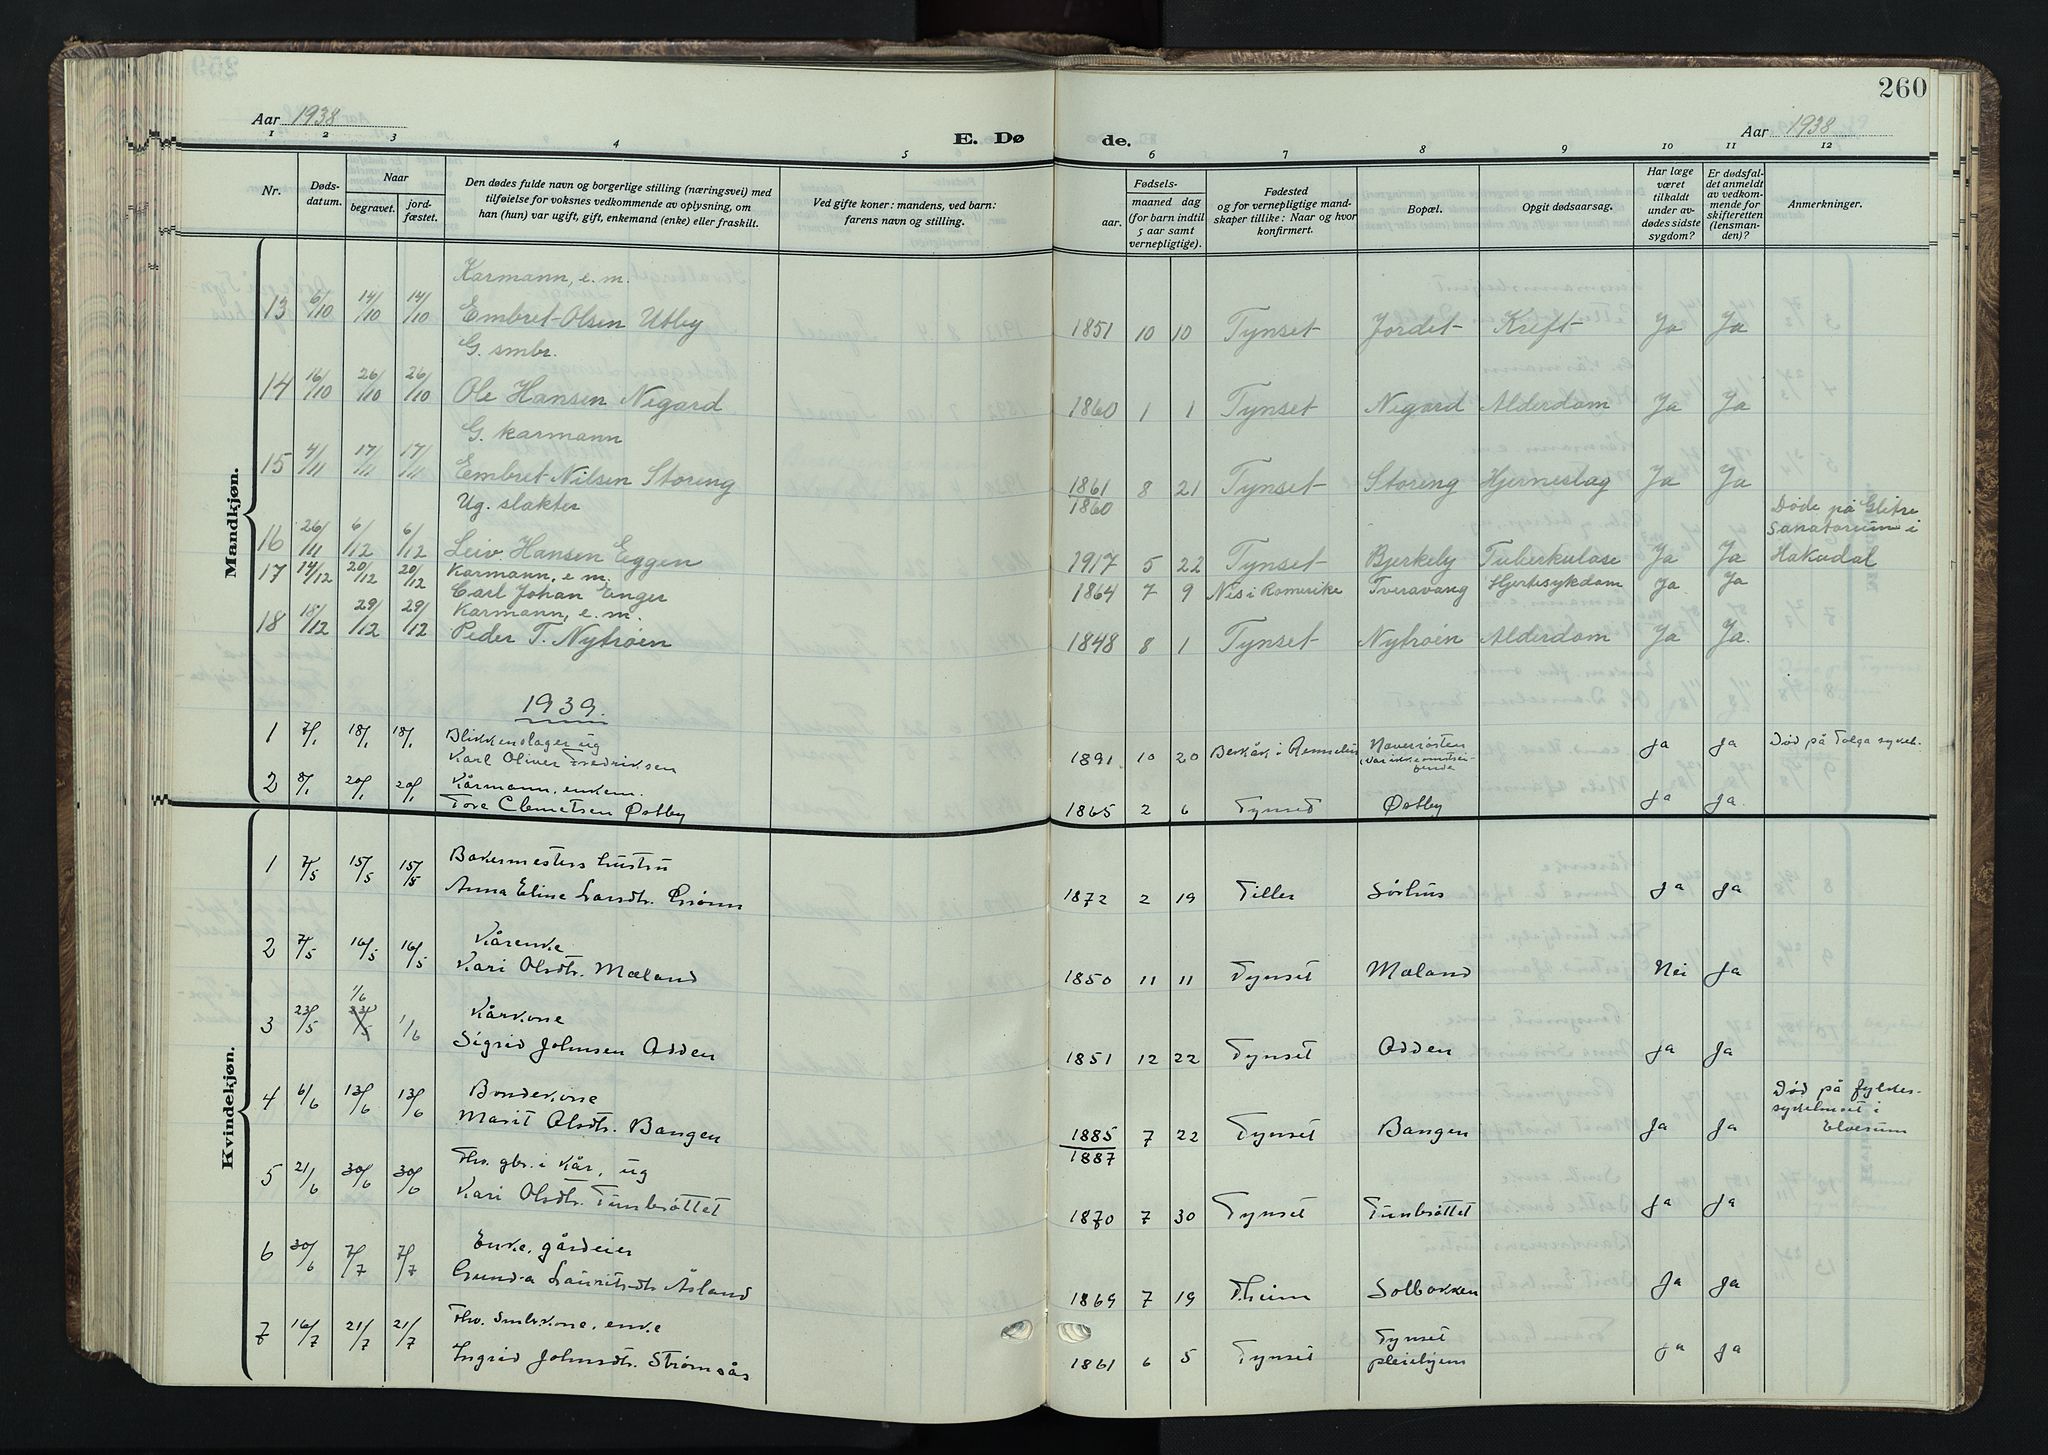 260
Aar 1938
E. Dø de.
Aar 1938
1 2 3 4 5 6 7 8 9 10 11 12
Nr.
Døds-
datum.
Naar
begravet.
jord-
fæstet.
Den dødes fulde navn og borgerlige stilling (næringsvei) med
tilføielse for voksnes vedkommende av oplysning, om
han (hun) var ugift, gift, enkemand (enke) eller fraskilt.
Ved gifte koner: mandens, ved barn:
farens navn og stilling.
Fødsels-
aar. maaned dag
(for barn indtil
5 aar samt
vernepligtige).
Fødested
og for vernepligtige mand-
skaper tillike: Naar og hvor
konfirmert.
Bopæl.
Opgit dødsaarsag.
Har læge
været
tilkaldt
under av-
dødes sidste
sygdom?
Er dødsfal-
det anmeldt
av vedkom-
mende for
skifteretten
(lensman-
den)?
Anmerkninger.
Mandkjøn.
Karmann, e. m.
13 6/10 14/10 14/10 Embret Olsen Utby 1851 10 10 Tynset Jordet Kreft Ja Ja
G. smbr.
14 16/10 26/10 26/10 Ole Hansen Negard 1860 1 1 Tynset Negard Alderdom Ja Ja
G. karmann
15 4/11 17/11 17/11 Embret Nilsen Storeng 1861/1860 8 21 Tynset Storeng Hjerneslag Ja Ja
Ug. slakter
Døde på Glitre
Sanatorium i
16 26/11 6/12 6/12 Leiv Hansen Eggen 1917 5 22 Tynset Bjerkely Tuberkulose Ja Ja Hakadal
17 14/12 20/12 20/12 Karmann, e. m.
Carl Johan Enger 1864 7 9 Nes i Romerike Tveravang Hjertesykdom Ja Ja
Karmann, e. m.
18 18/12 29/12 29/12 Peder T. Nytrøen 1848 8 1 Tynset Nytrøen Alderdom Ja Ja.
1939.
1 7/1 18/1 18/1 Blikkenslager ug
Karl Oliver Fredriksen 1891 10 20 Berkåk i Rennebu ja ja Død på Tolga sykeh.
2 8/1 20/1 20/1 Kårmann, enkem.
Tore Clemetsen Østby 1865 2 6 Tynset Østby ja ja.
Kvindekjøn.
1 7/5 15/5 15/5 Bakermesters hustru
Anna Eline Larsdtr. Grønn 1872 2 19 Tiller Sørhus ja ja
2 7/5 16/5 16/5 Kårenke
Kari Olsdtr. Mæland 1850 11 11 Tynset Mæland Nei ja
1/6
3 23/5 23/5 1/6 Kårkone
Sigrid Johnsen Odden 1851 12 22 Tynset Odden ja ja
4 6/6 13/6 13/6 Bondekone
Marit Olsdtr. Bangen 1885/1887 7 22 Tynset Bangen Ja Ja
Død på fylkes-
sykehuset i
Elverum
5 21/6 30/6 30/6 Fhv. gbr. i kår, ug
Kari Olsdtr. Tunbrøttet 1870 7 30 Tynset Tunbrøttet ja ja
6 30/6 7/7 7/7 Enke, gårdeier
Gunda Lauritsdtr Åsland 1869 7 19 Tr.heim Solbakken Ja Ja
7 16/7 21/7 21/7 Fhv. Smbr.kone, enke
Ingrid Johnsdtr. Strømsås 1861 6 5 Tynset Tynset
pleiehjem ja ja